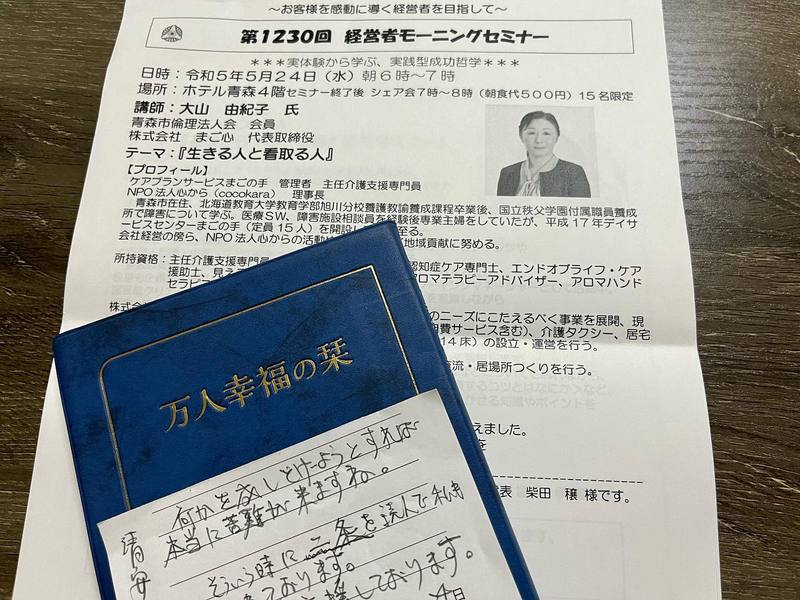 ～お客様を感動に導く経営者を目指して～
第1230回 経営者モーニングセミナー
＊＊＊実体験から学ぶ、実践型成功哲学＊＊＊
日時：令和5年5月24日（水）朝6時～7時
場所：ホテル青森4階セミナー終了後 シェア会7時～8時（朝食代500円）15名限定
講師：大山 由紀子 氏
青森市倫理法人会 会員
株式会社 まご心 代表取締役
テーマ：『生きる人と看取る人』
【プロフィール】
ケアプランサービスまごの手 管理者 主任介護支援専門員
NPO法人心から（cocokara） 理事長
青森市在住、北海道教育大学教育学部旭川分校養護教諭養成課程卒業後、国立秩父学園付属職員養成
所で障害について学ぶ。医療SW、障害施設相談員を経験後専業主婦をしていたが、平成17年デイサ
ービスセンターまごの手（定員15人）を開設し 至る。
会社経営の傍ら、NPO法人心からの活動 地域貢献に努める。
所持資格：主任介護支援専門員 認知症ケア専門士、エンドオブライフ・ケア
援助士、見え アロマテラピーアドバイザー、アロマハンド
セラピス
株式会 のニーズにこたえるべく事業を展開、現
費サービス含む）、介護タクシー、居宅
14床）の設立・運営を行う。
流・居場所つくりを行う。
えました。
を
表 柴田 穣 様です。
万人幸福の栞
何かを成しとげようとすれば
本当に苦難が来ますね。
そういう時に 二条を読んで私も
ております。
しております。